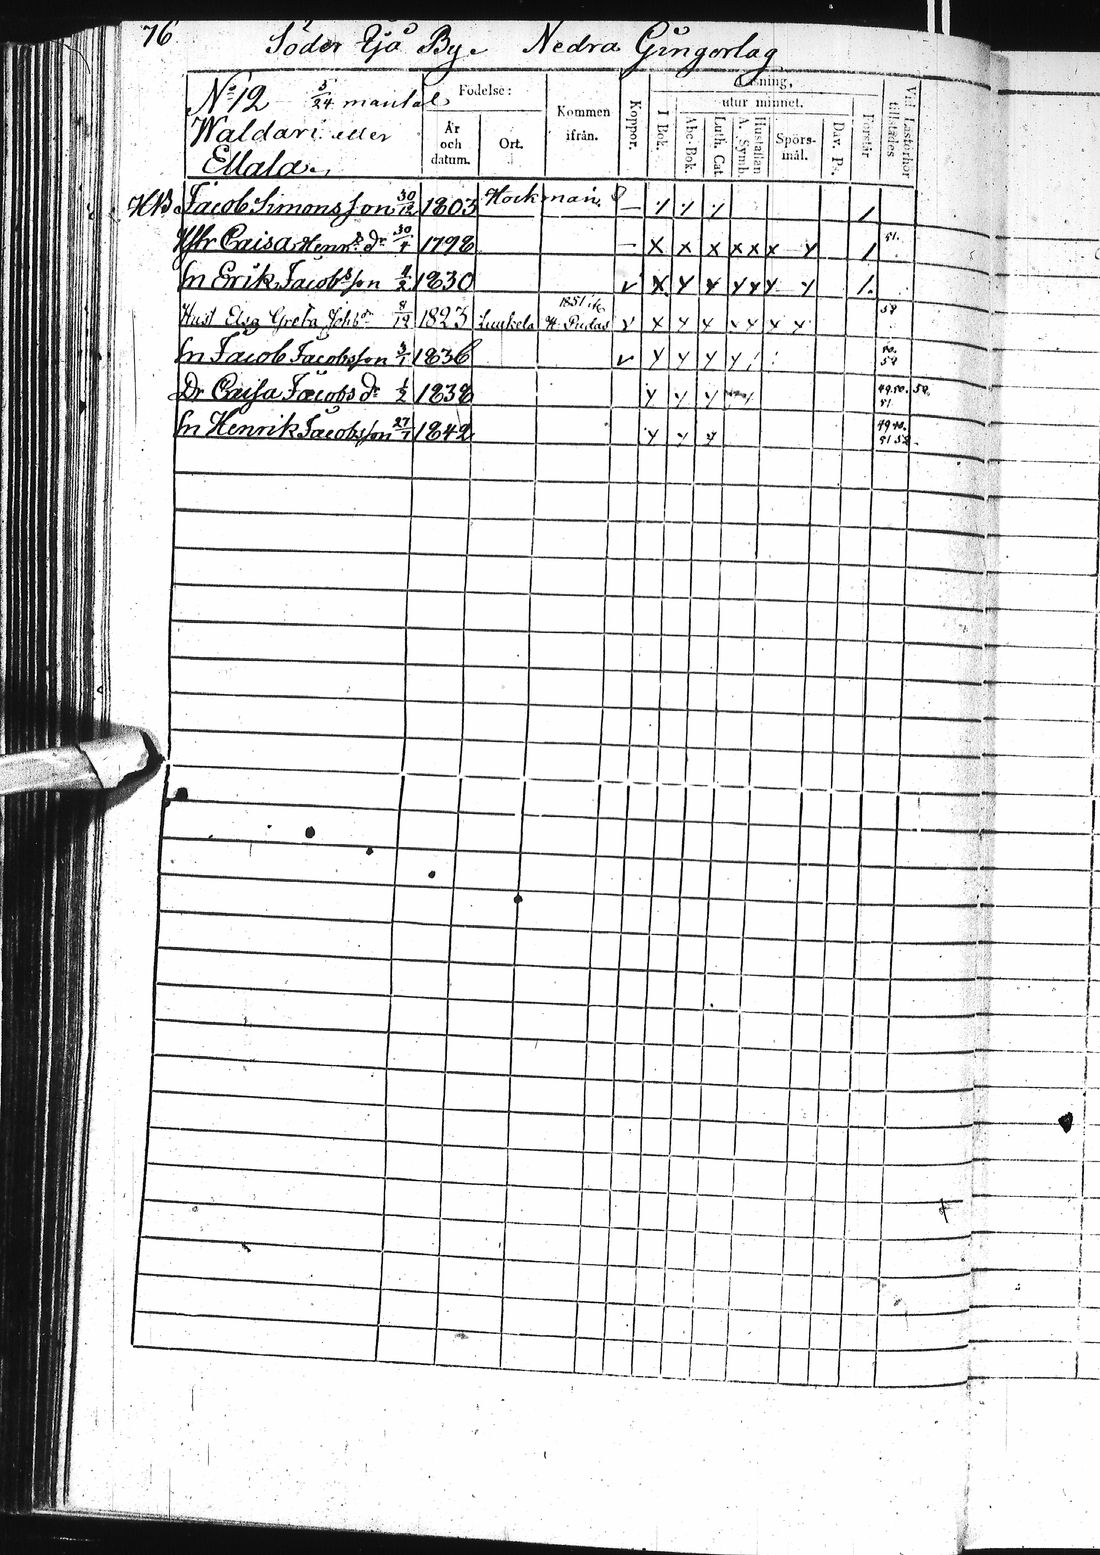 76
Söder Ijå By. Nedra Güngerlag
No 12 3/24 mantal
Waldari eller
Ellala.
Födelse:
År och datum.
Ort.
Kommen ifrån.
Koppor.
Läsning,
utur minnet.
I Bok.
Abc-Bok.
Luth. Cat.
A. Symb.
Hustaflan
Spörs-mål.
Dav. Ps.
Förstår
Vid Läsförhör tillstädes
HB Jacob Simonsson 30/12 1803 Hockman
Hstr Caisa Henrs dr 30/4 1798 51.
Sn Erik Jacobsson 1830
Hust Elsa Greta Johs dr 8/12 1823 Luukela 1851 H. Pudas 52
Sn Jacob Jacobsson 3/1 1836 50. 52
Dr Caisa Jacobs dr 1/2 1838 49.50. 52. 51
Sn Henrik Jacobsson 27/1 1842 49 50. 51 52.